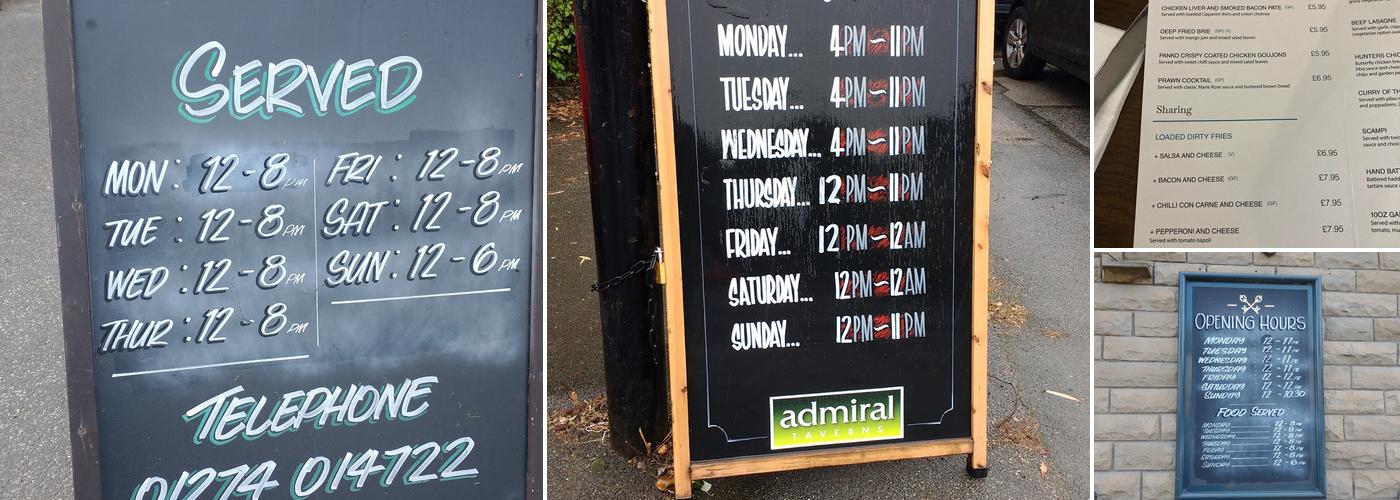 SERVED
MON : 12-8PM
TUE : 12-8PM
WED : 12-8PM
THUR : 12-8PM
FRI : 12-8PM
SAT : 12-8PM
SUN : 12-6PM
TELEPHONE
01274 014722
MONDAY... 4PM~11PM
TUESDAY... 4PM~11PM
WEDNESDAY... 4PM~11PM
THURSDAY... 12PM~11PM
FRIDAY... 12PM~12AM
SATURDAY... 12PM~12AM
SUNDAY... 12PM~11PM
admiral
TAVERNS
CHICKEN LIVER AND SMOKED BACON PATE (GF) £5.95
Served with toasted Ciapanini thins and onion chutney
DEEP FRIED BRIE (GF) (V) £5.95
Served with mango jam and mixed salad leaves
PANKO CRISPY COATED CHICKEN GOUJONS £5.95
Served with sweet chilli sauce and mixed salad leaves
PRAWN COCKTAIL (GF) £6.95
Served with classic Marie Rose sauce and buttered brown bread
Sharing
LOADED DIRTY FRIES
+ SALSA AND CHEESE (V) £6.95
+ BACON AND CHEESE (GF) £7.95
+ CHILLI CON CARNE AND CHEESE (GF) £7.95
+ PEPPERONI AND CHEESE £7.95
Served with tomato napoli
BEEF LASAGNE
Served with garlic
HUNTERS
Butterfly chicken
bbq sauce and
chips and garden
CURRY OF
Served with pilau
and poppadoms.
SCAMPI
Served with
sauce and
HAND
Battered
tartare sauce
10OZ
Served with
tomato,
OPENING HOURS
MONDAY 12 - 11PM
TUESDAY 12 - 11PM
WEDNESDAY 12 - 11PM
THURSDAY 12 - 11PM
FRIDAY 12 - 12PM
SATURDAY 12 - 12PM
SUNDAY 12 - 10.30
FOOD SERVED
MONDAY 12 - 8PM
TUESDAY 12 - 8PM
WEDNESDAY 12 - 8PM
THURSDAY 12 - 8PM
FRIDAY 12 - 8PM
SATURDAY 12 - 8PM
SUNDAY 12 - 6PM